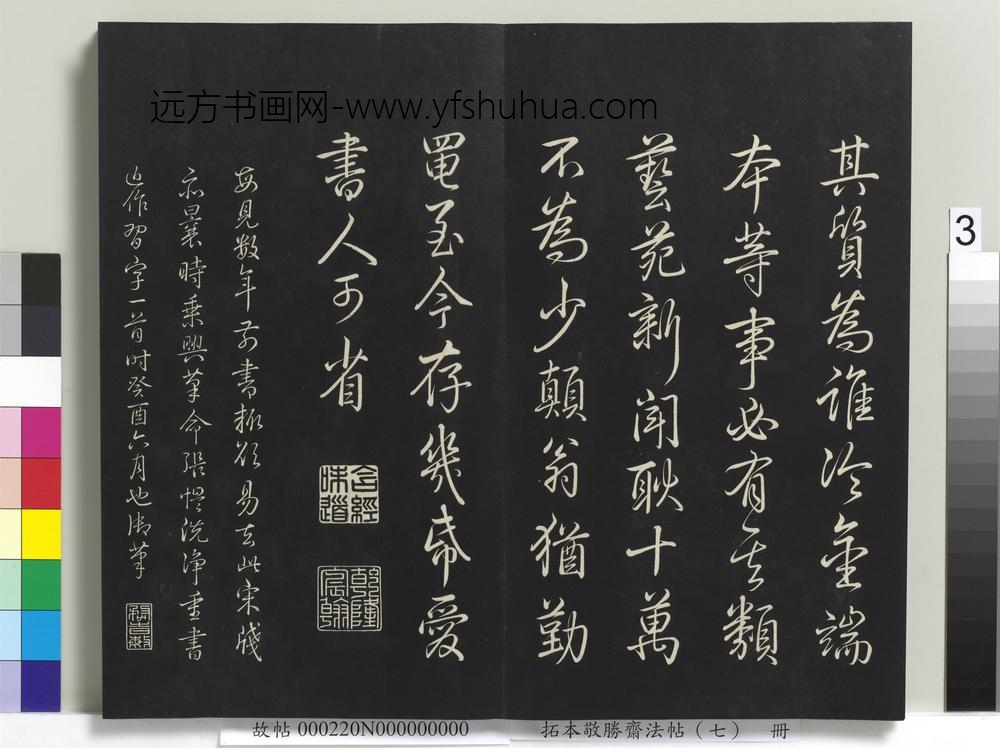 远方书画网-www.yfshuhua.com
其質為誰泠金端
本等事必有其類
藝苑新聞耿十萬
不為少顛翁猶勤
黽至今存幾帋愛
書人可省
每見數年前書輒欲易去此宋牋
亦曩時乘興筆命張愷洗淨重書
近作習字一首時癸酉六月也御筆
含經味道
乾隆宸翰
3
故帖 000220N000000000
拓本敬勝齋法帖（七） 冊